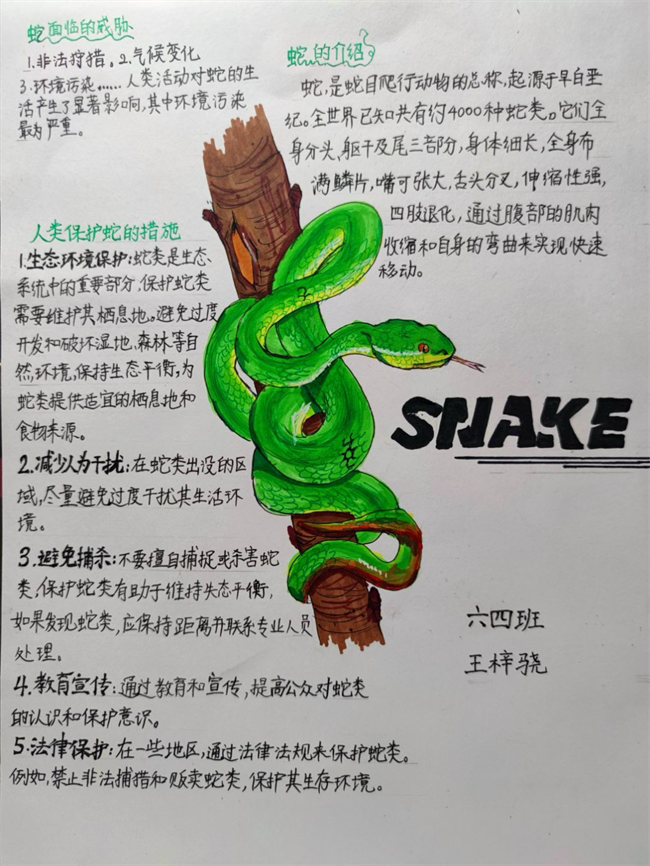 蛇面临的威胁
1.非法狩猎。2.气候变化
3.环境污染……人类活动对蛇的生
活产生了显著影响,其中环境污染
最为严重。
蛇的介绍
蛇,是蛇目爬行动物的总称,起源于早白垩
纪。全世界已知共有约4000种蛇类。它们全
身分头、躯干及尾三部分,身体细长,全身布
满鳞片,嘴可张大,舌头分叉,伸缩性强,
四肢退化,通过腹部的肌肉
收缩和自身的弯曲来实现快速
移动。
人类保护蛇的措施
1.生态环境保护:蛇类是生态
系统中的重要部分,保护蛇类
需要维护其栖息地。避免过度
开发和破坏湿地、森林等自
然环境,保持生态平衡,为
蛇类提供适宜的栖息地和
食物来源。
2.减少人为干扰:在蛇类出没的区
域,尽量避免过度干扰其生活环
境。
3.避免捕杀:不要擅自捕捉或杀害蛇
类,保护蛇类有助于维持失态平衡,
如果发现蛇类,应保持距离并联系专业人员
处理。
4.教育宣传:通过教育和宣传,提高公众对蛇类
的认识和保护意识。
5.法律保护:在一些地区,通过法律法规来保护蛇类。
例如,禁止非法捕猎和贩卖蛇类,保护其生存环境。
SNAKE
六四班
王梓骁